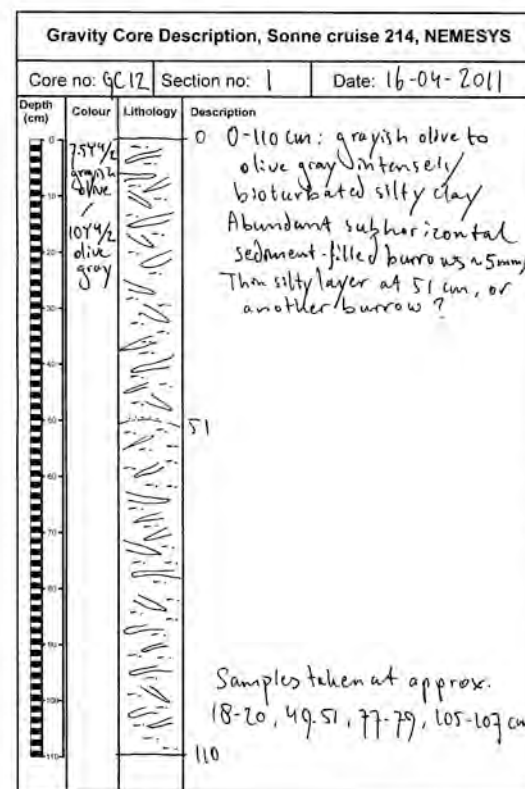 Gravity Core Description, Sonne cruise 214, NEMESYS
Core no: GC12 Section no: 1 Date: 16-04-2011
Depth (cm) Colour Lithology Description
7.5Y4/2
grayish
olive
/
10Y4/2
olive
gray
0 0-110 cm: grayish olive to
olive gray intensely
bioturbated silty clay
Abundant subhorizontal
sediment-filled burrows ~5mm
Thin silty layer at 51 cm, or
another burrow?
0
-10
-20
-30
-40
-50
51
-60
-70
-80
-90
Samples taken at approx.
-100
18-20, 49-51, 77-79, 105-107 cm
-110
110